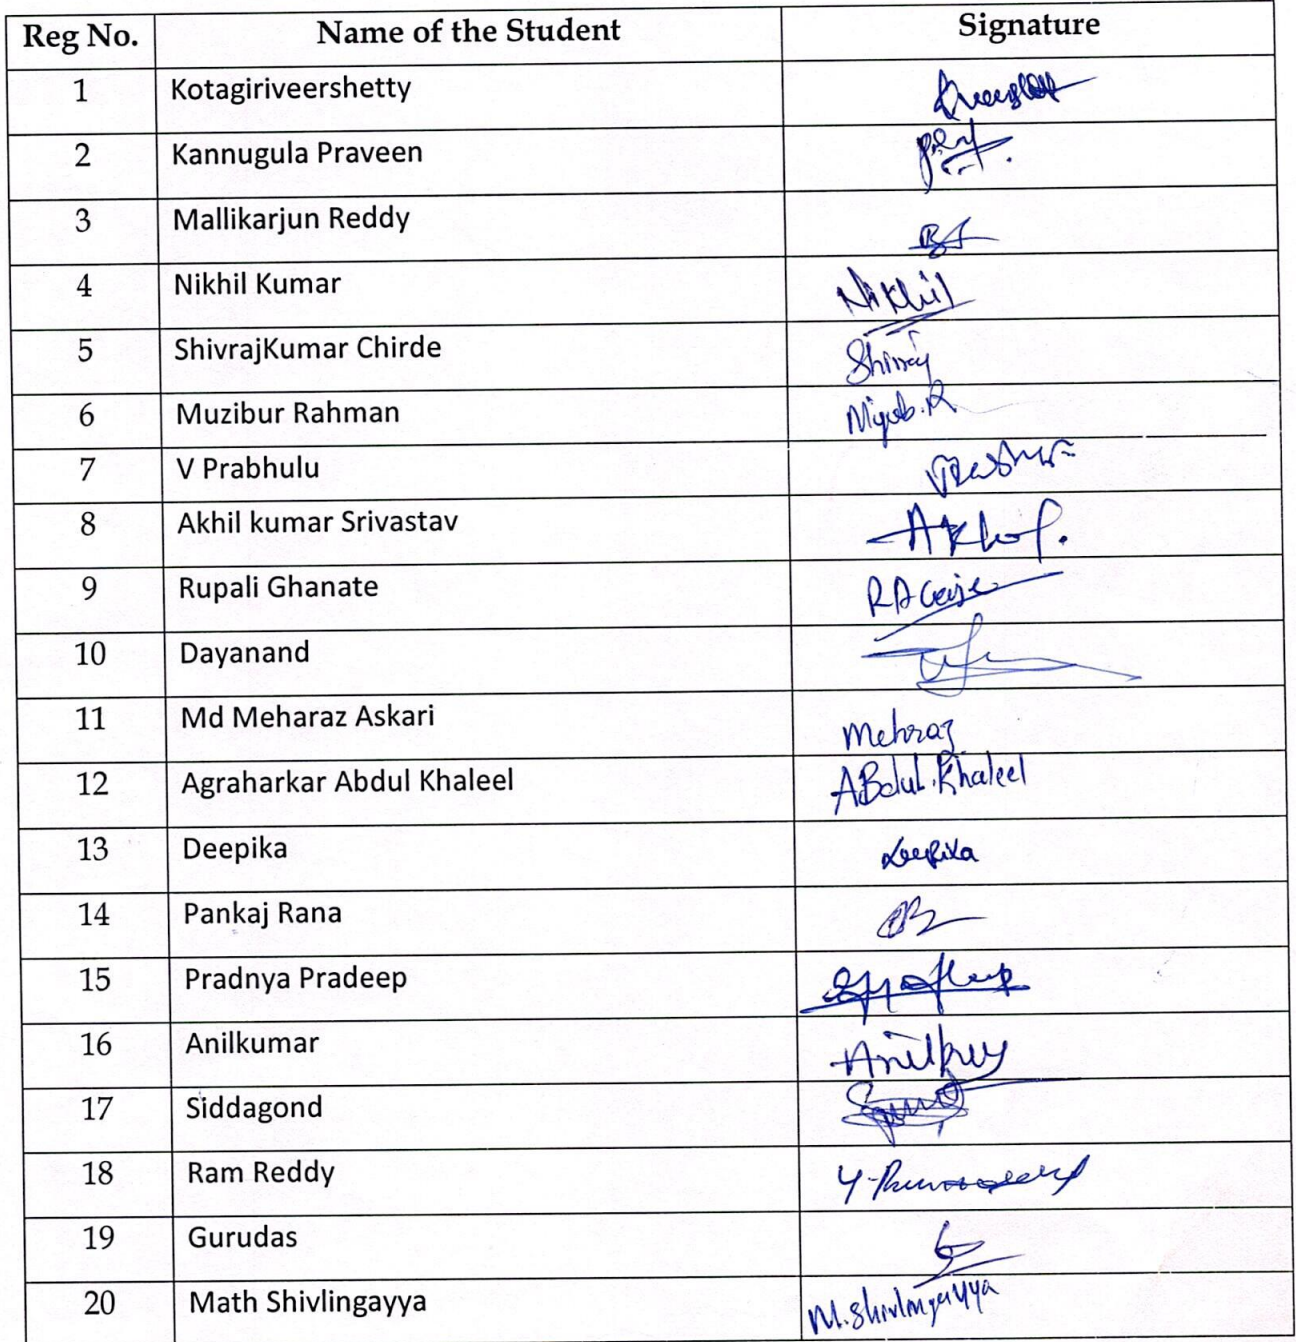 Reg No. Name of the Student Signature
1 Kotagiriveershetty
2 Kannugula Praveen
3 Mallikarjun Reddy
4 Nikhil Kumar Nikhil
5 ShivrajKumar Chirde Shivraj
6 Muzibur Rahman
7 V Prabhulu
8 Akhil kumar Srivastav Akhil.
9 Rupali Ghanate
10 Dayanand
11 Md Meharaz Askari Mehraz
12 Agraharkar Abdul Khaleel ABdul.Khaleel
13 Deepika Deepika
14 Pankaj Rana
15 Pradnya Pradeep
16 Anilkumar
17 Siddagond
18 Ram Reddy
19 Gurudas
20 Math Shivlingayya M.Shivlingayya